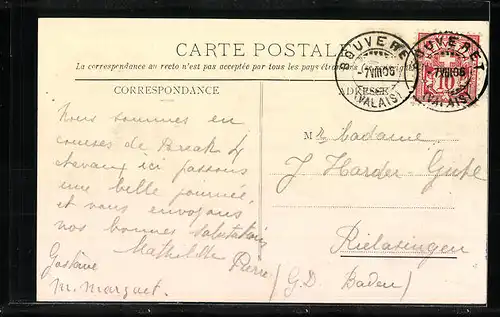 CARTE POSTALE
La correspondance au recto n'est pas acceptée par tous les pays étrangers
CORRESPONDANCE
ADRESSE
BOUVERET
-7 VIII 06
(VALAIS)
BOUVERET
7 VIII 06
(VALAIS)
10
Nous sommes en
courses de Break 4
chevaux ici passons
une belle journée,
et vous envoyons
nos bonnes salutations
Mathilde Pierre
Gustave
M. Marguet.
M Madame
J Harder
Rielasingen
(G.D. Baden)